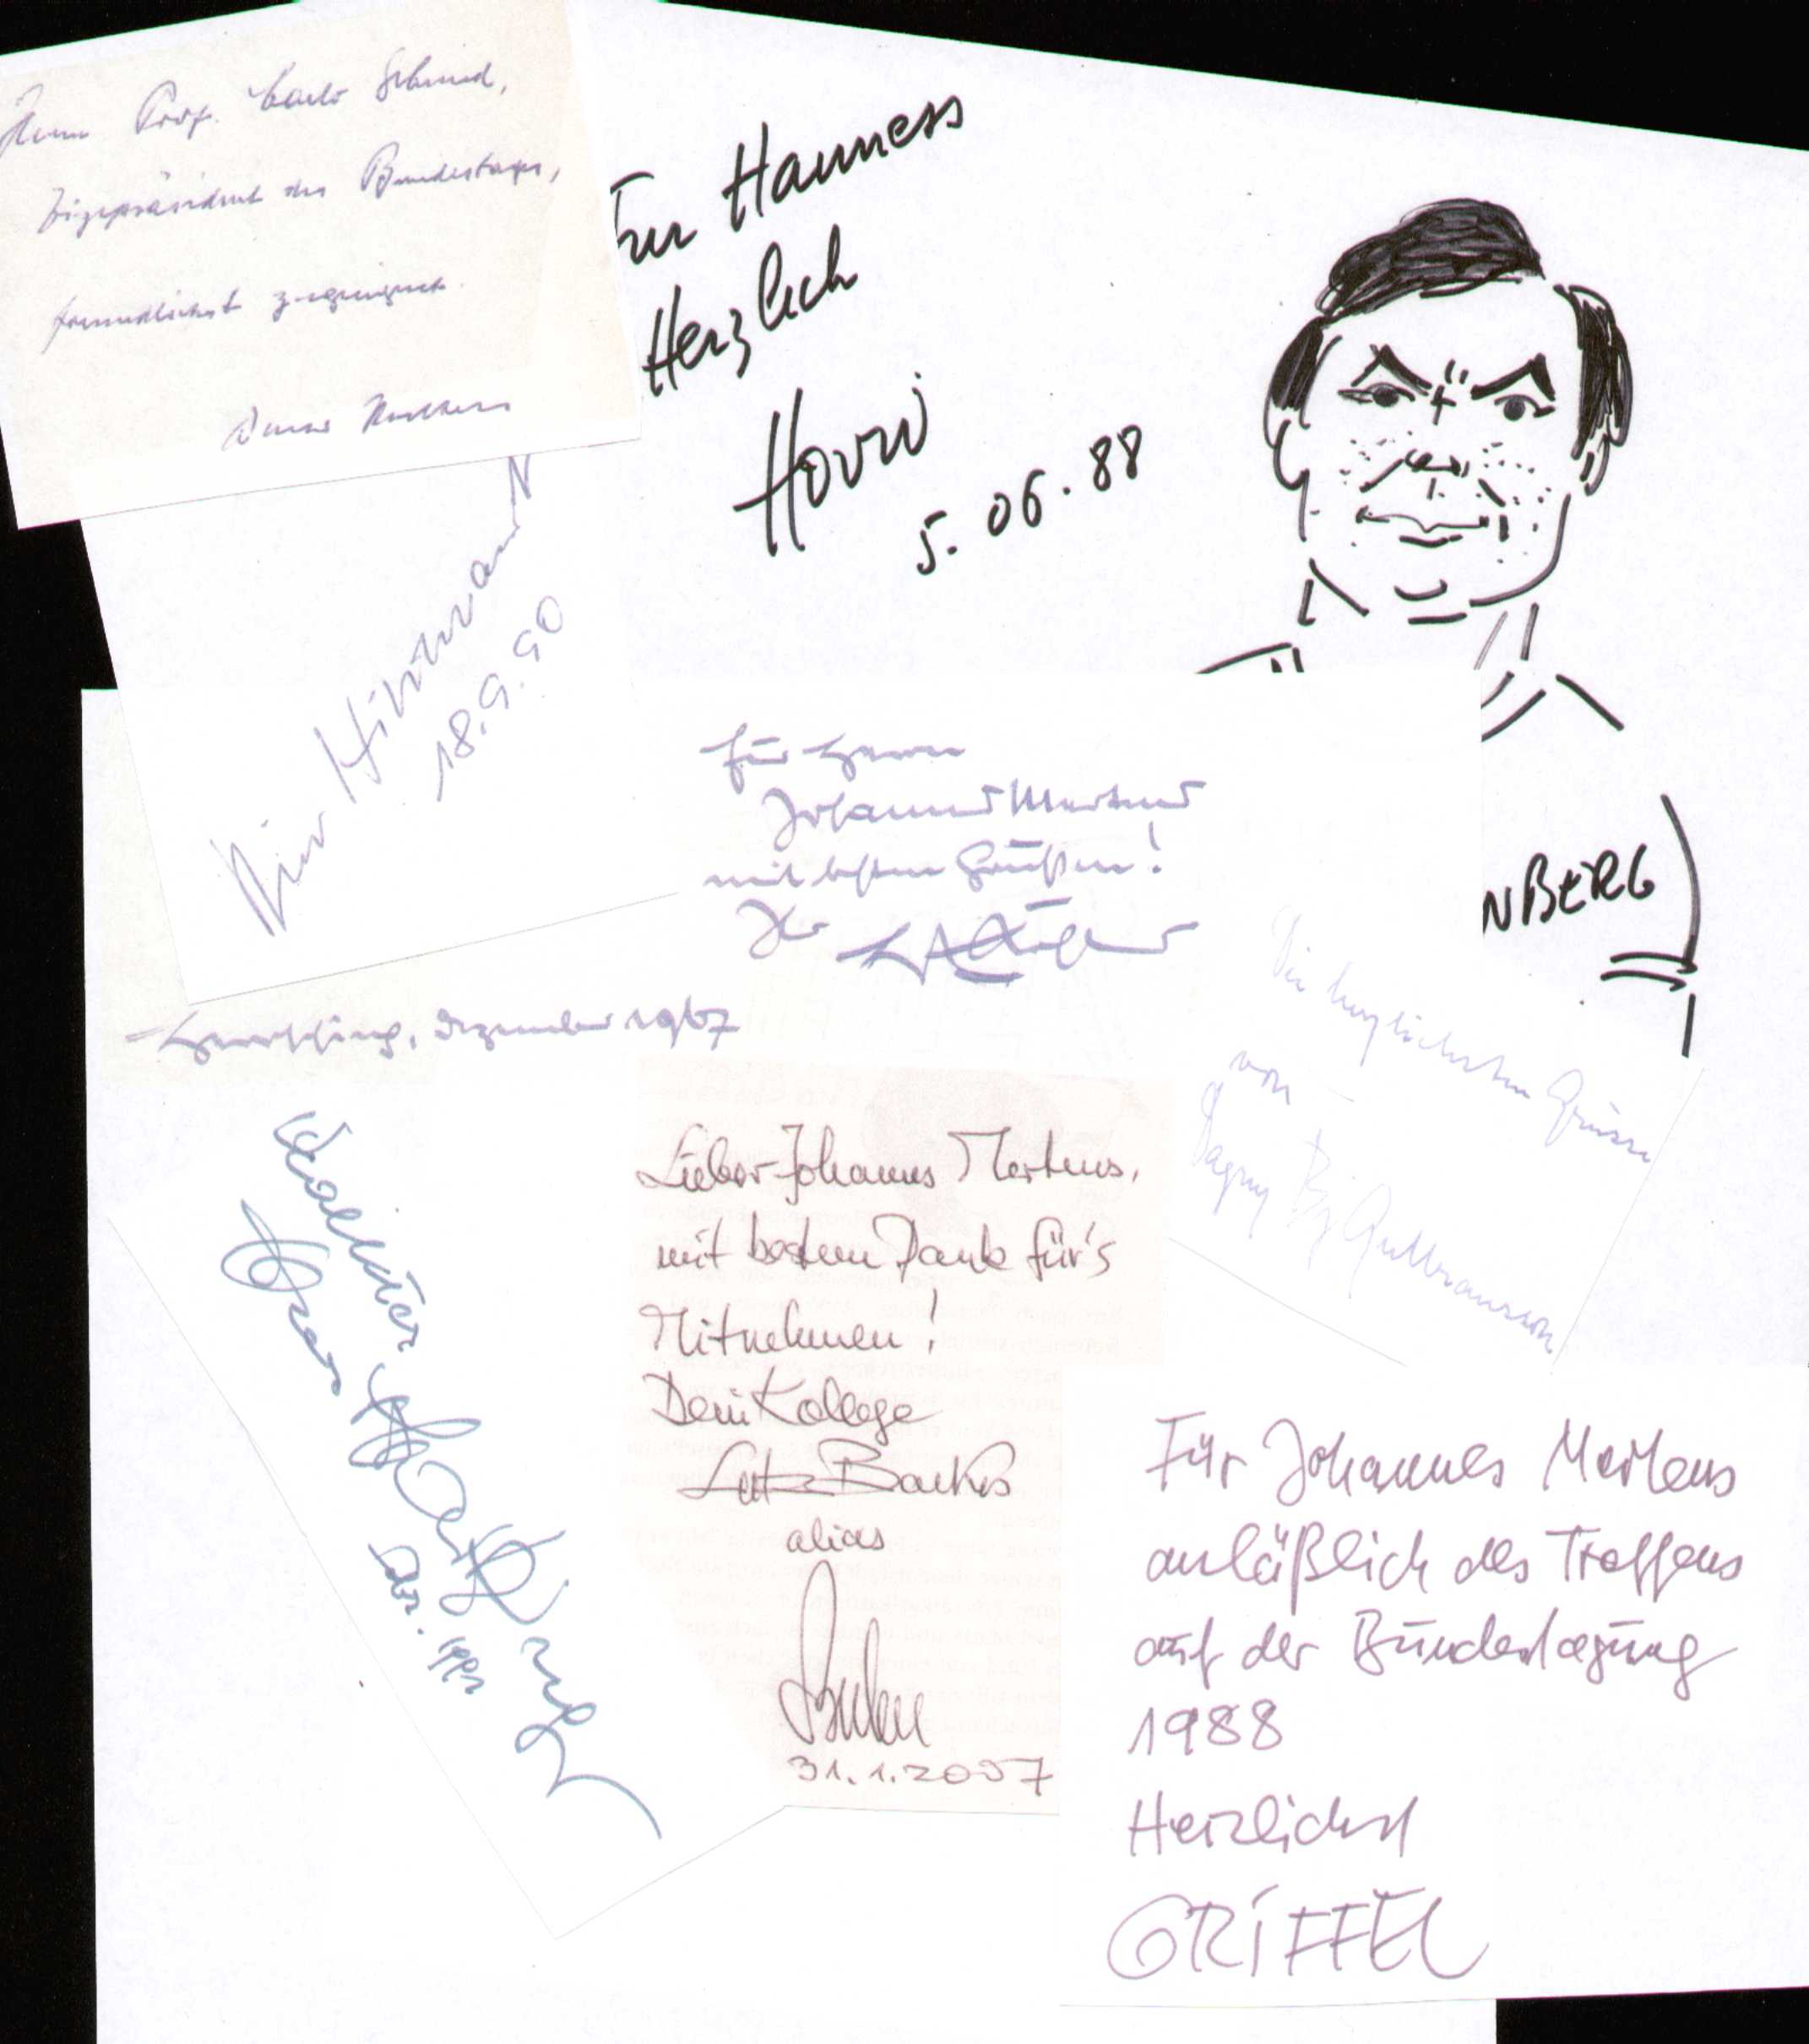 Herrn Prof. Carlo Schmid,
Vizepräsident des Bundestages,
freundlichst zugeeignet.
Für Hanness
Herzlich
5.06.88
18.9.90
für Herrn
Johannes Mertens
mit besten Grüßen!
Ihr
NBERG
Herrsching, Dezember 1967
Die herzlichsten Grüsse
von
Dagny Bj Gulbransson
Lieber Johannes Mertens,
mit bestem Dank für's
Mitnehmen!
Dein Kollege
Lutz Backes
alias
31.1.2007
Für Johannes Mertens
anläßlich des Treffens
auf der Bundestagung
1988
Herzlichst
GRIFFEL